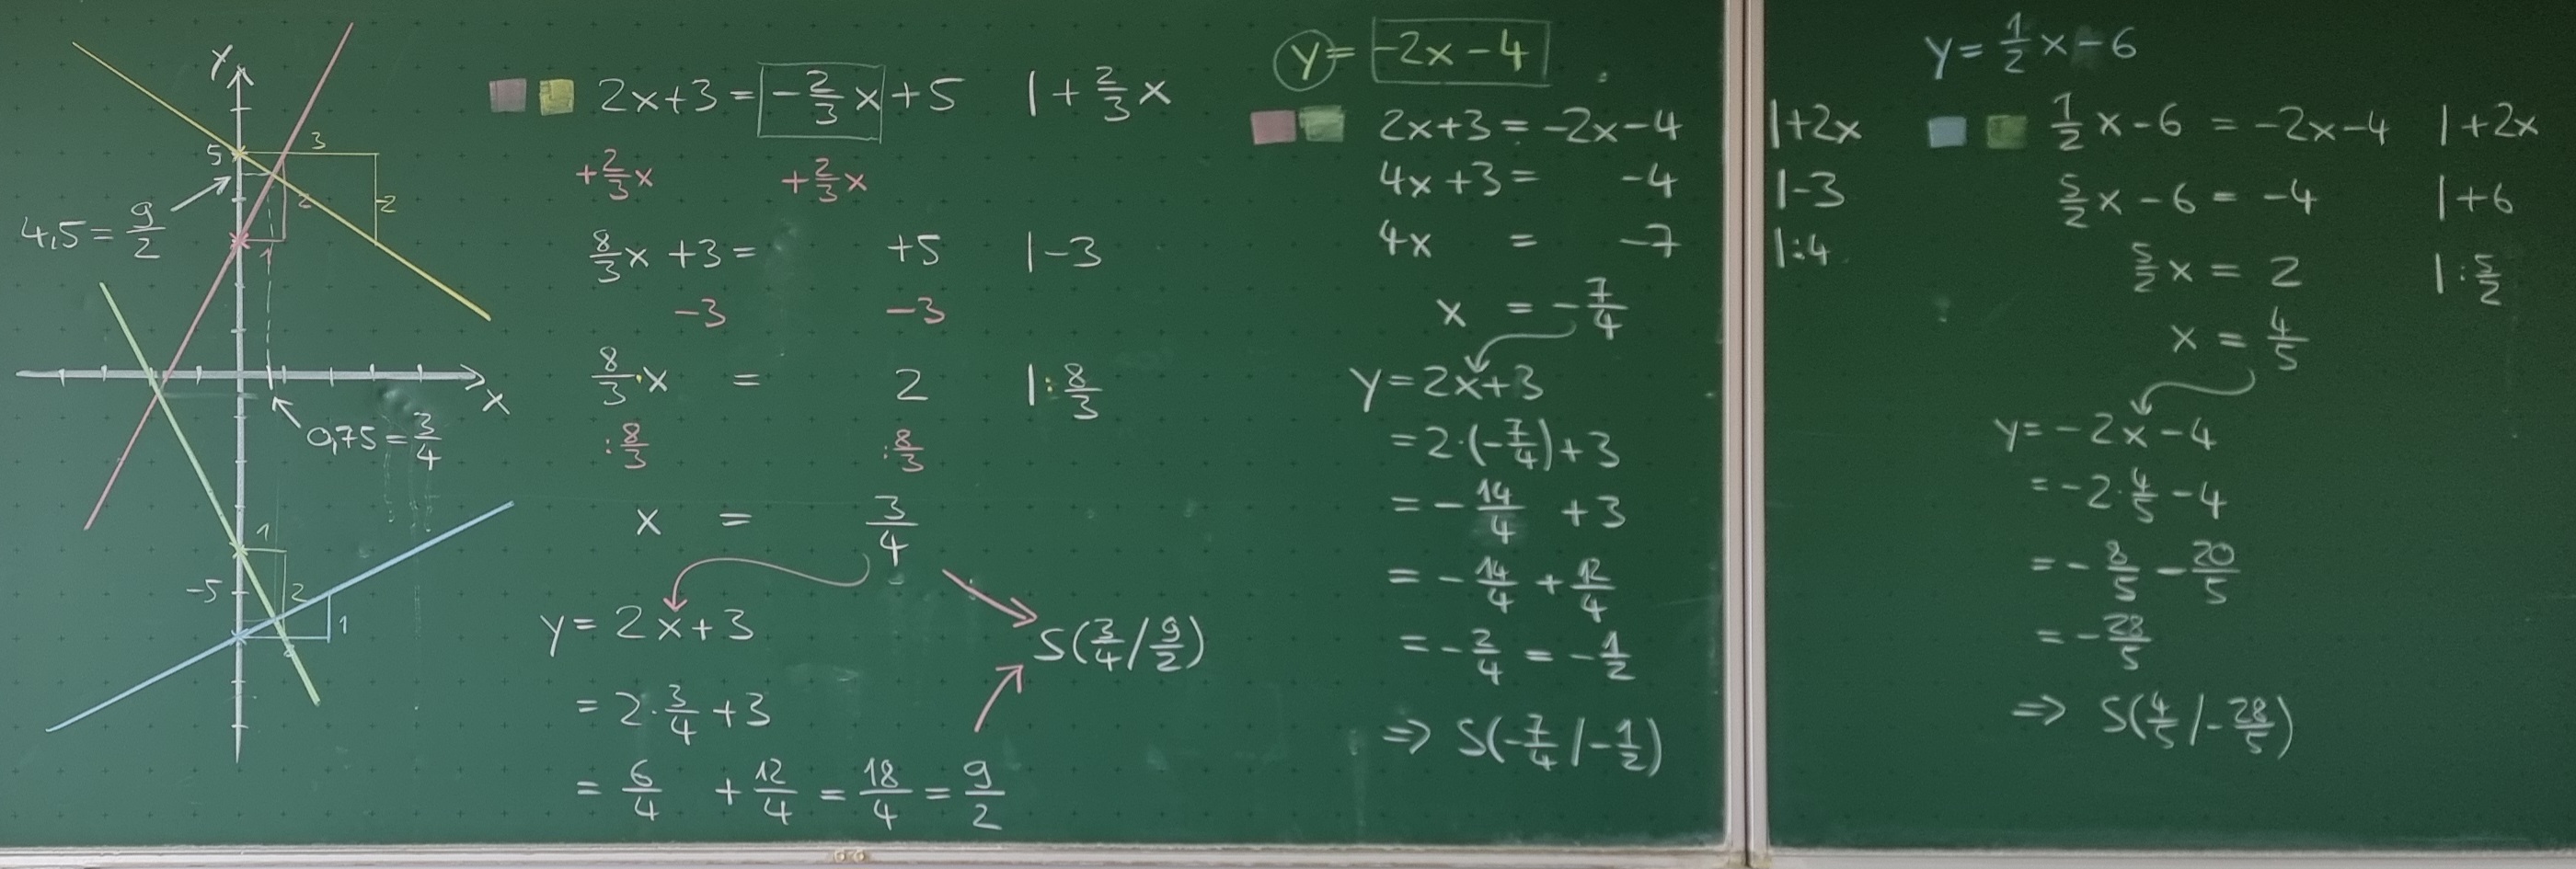 y
5
3
2
-2
1
4,5 = 9/2
x
0,75 = 3/4
1
-5
2
1
2x+3 = -2/3 x + 5 | + 2/3 x
+2/3 x +2/3 x
8/3 x + 3 = +5 | -3
-3 -3
8/3 · x = 2 | : 8/3
: 8/3 : 8/3
x = 3/4
y = 2x + 3
= 2 · 3/4 + 3
= 6/4 + 12/4 = 18/4 = 9/2
S(3/4 / 9/2)
y = -2x - 4
2x+3 = -2x-4 | +2x
4x +3 = -4 | -3
4x = -7 | :4
x = -7/4
y = 2x+3
= 2 · (-7/4) + 3
= -14/4 + 3
= -14/4 + 12/4
= -2/4 = -1/2
⇒ S(-7/4 / -1/2)
y = 1/2 x - 6
1/2 x - 6 = -2x - 4 | +2x
5/2 x - 6 = -4 | +6
5/2 x = 2 | : 5/2
x = 4/5
y = -2x - 4
= -2 · 4/5 - 4
= -8/5 - 20/5
= -28/5
⇒ S(4/5 / -28/5)